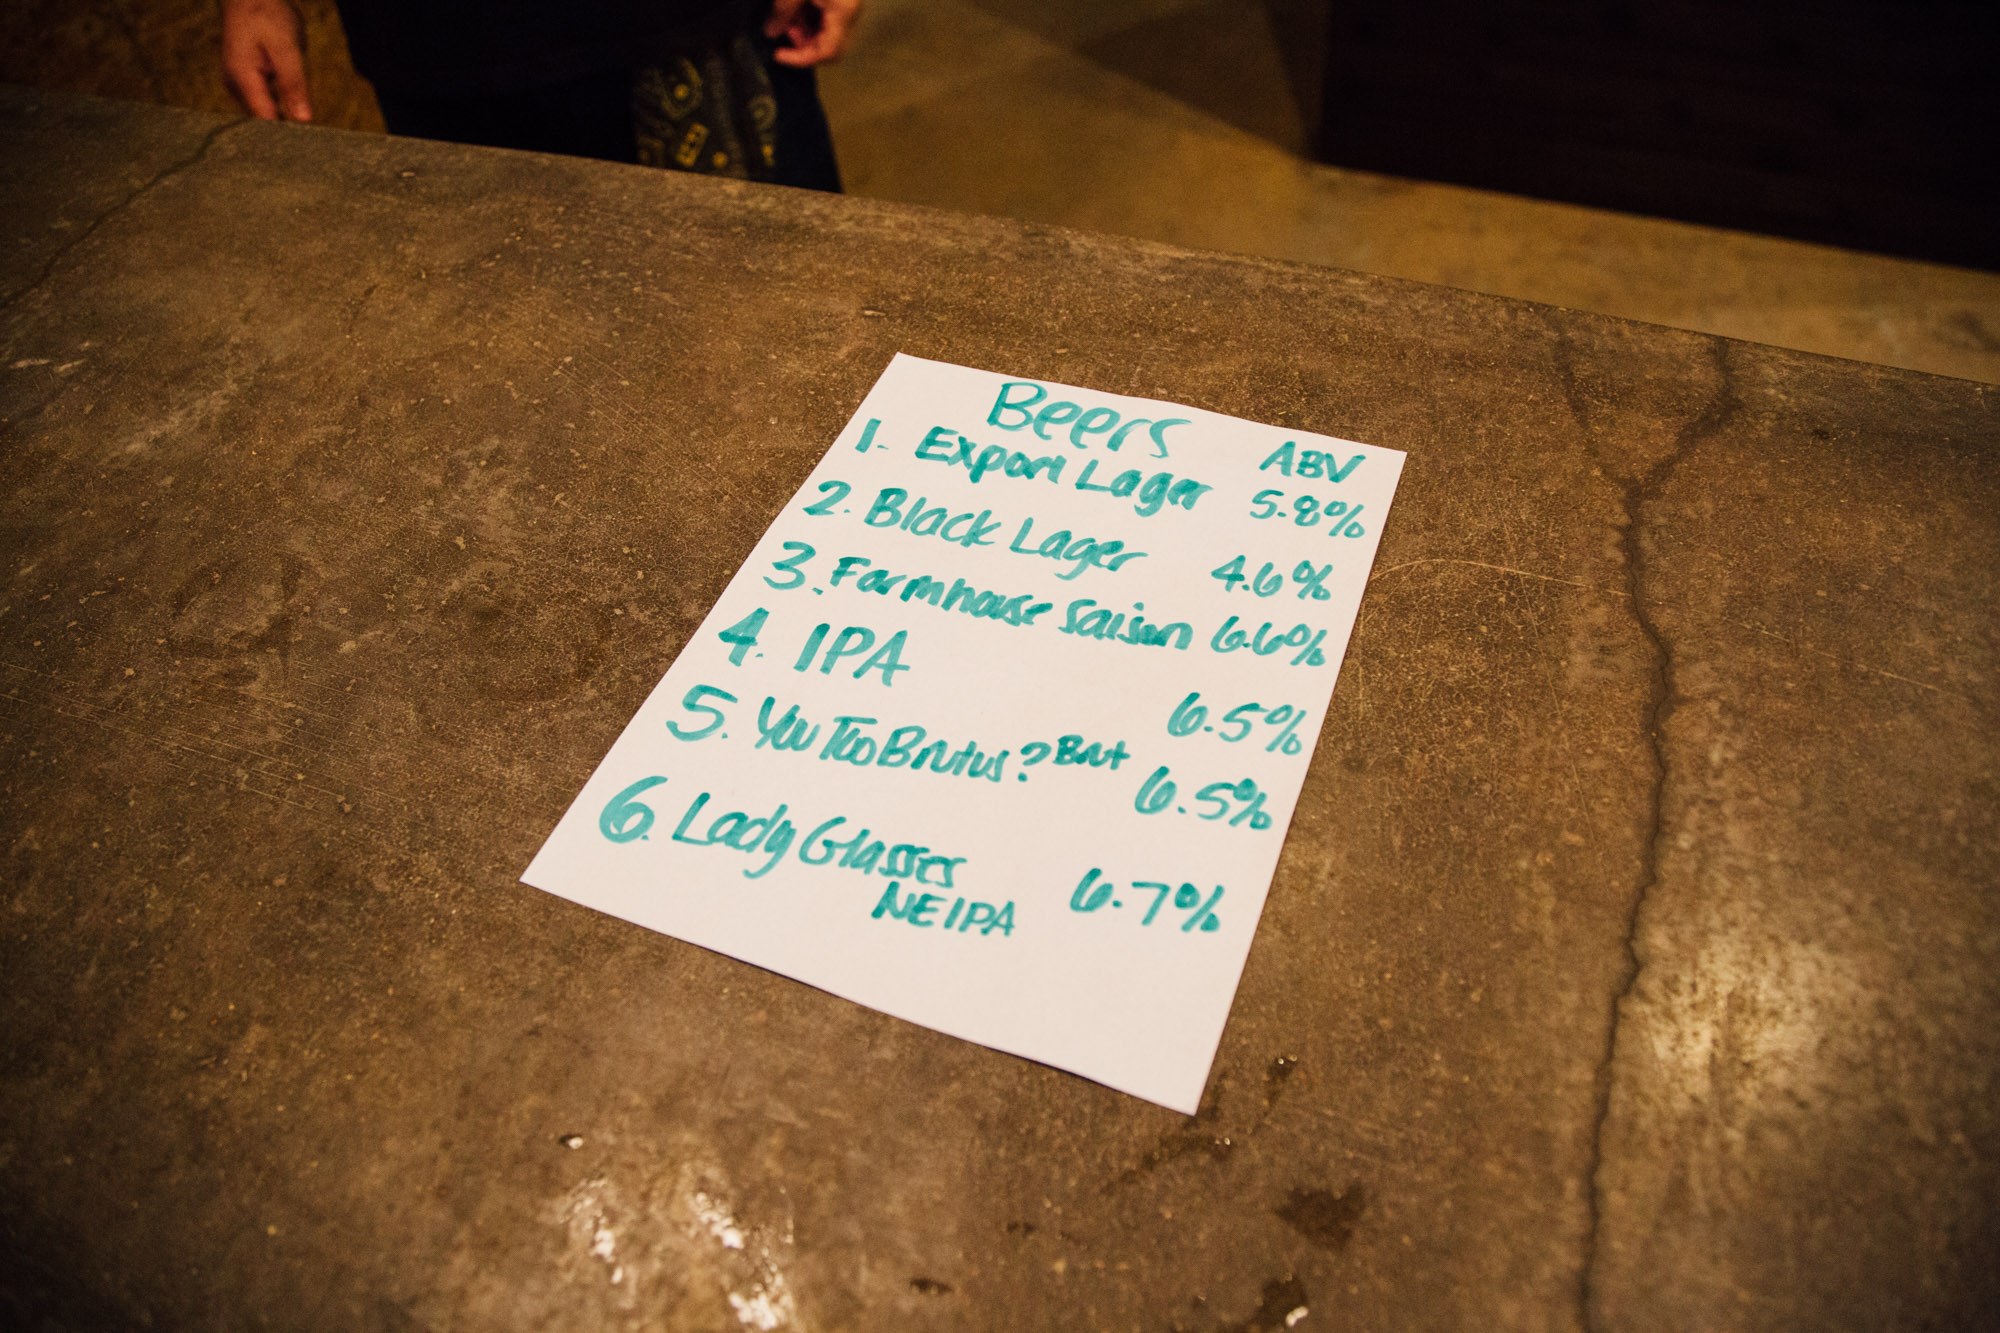 Beers ABV
1. Export Lager 5.8%
2. Black Lager 4.6%
3. Farmhouse Saison 6.6%
4. IPA 6.5%
5. You Too Brutus? Brut 6.5%
6. Lady Glasses 6.7%
NEIPA